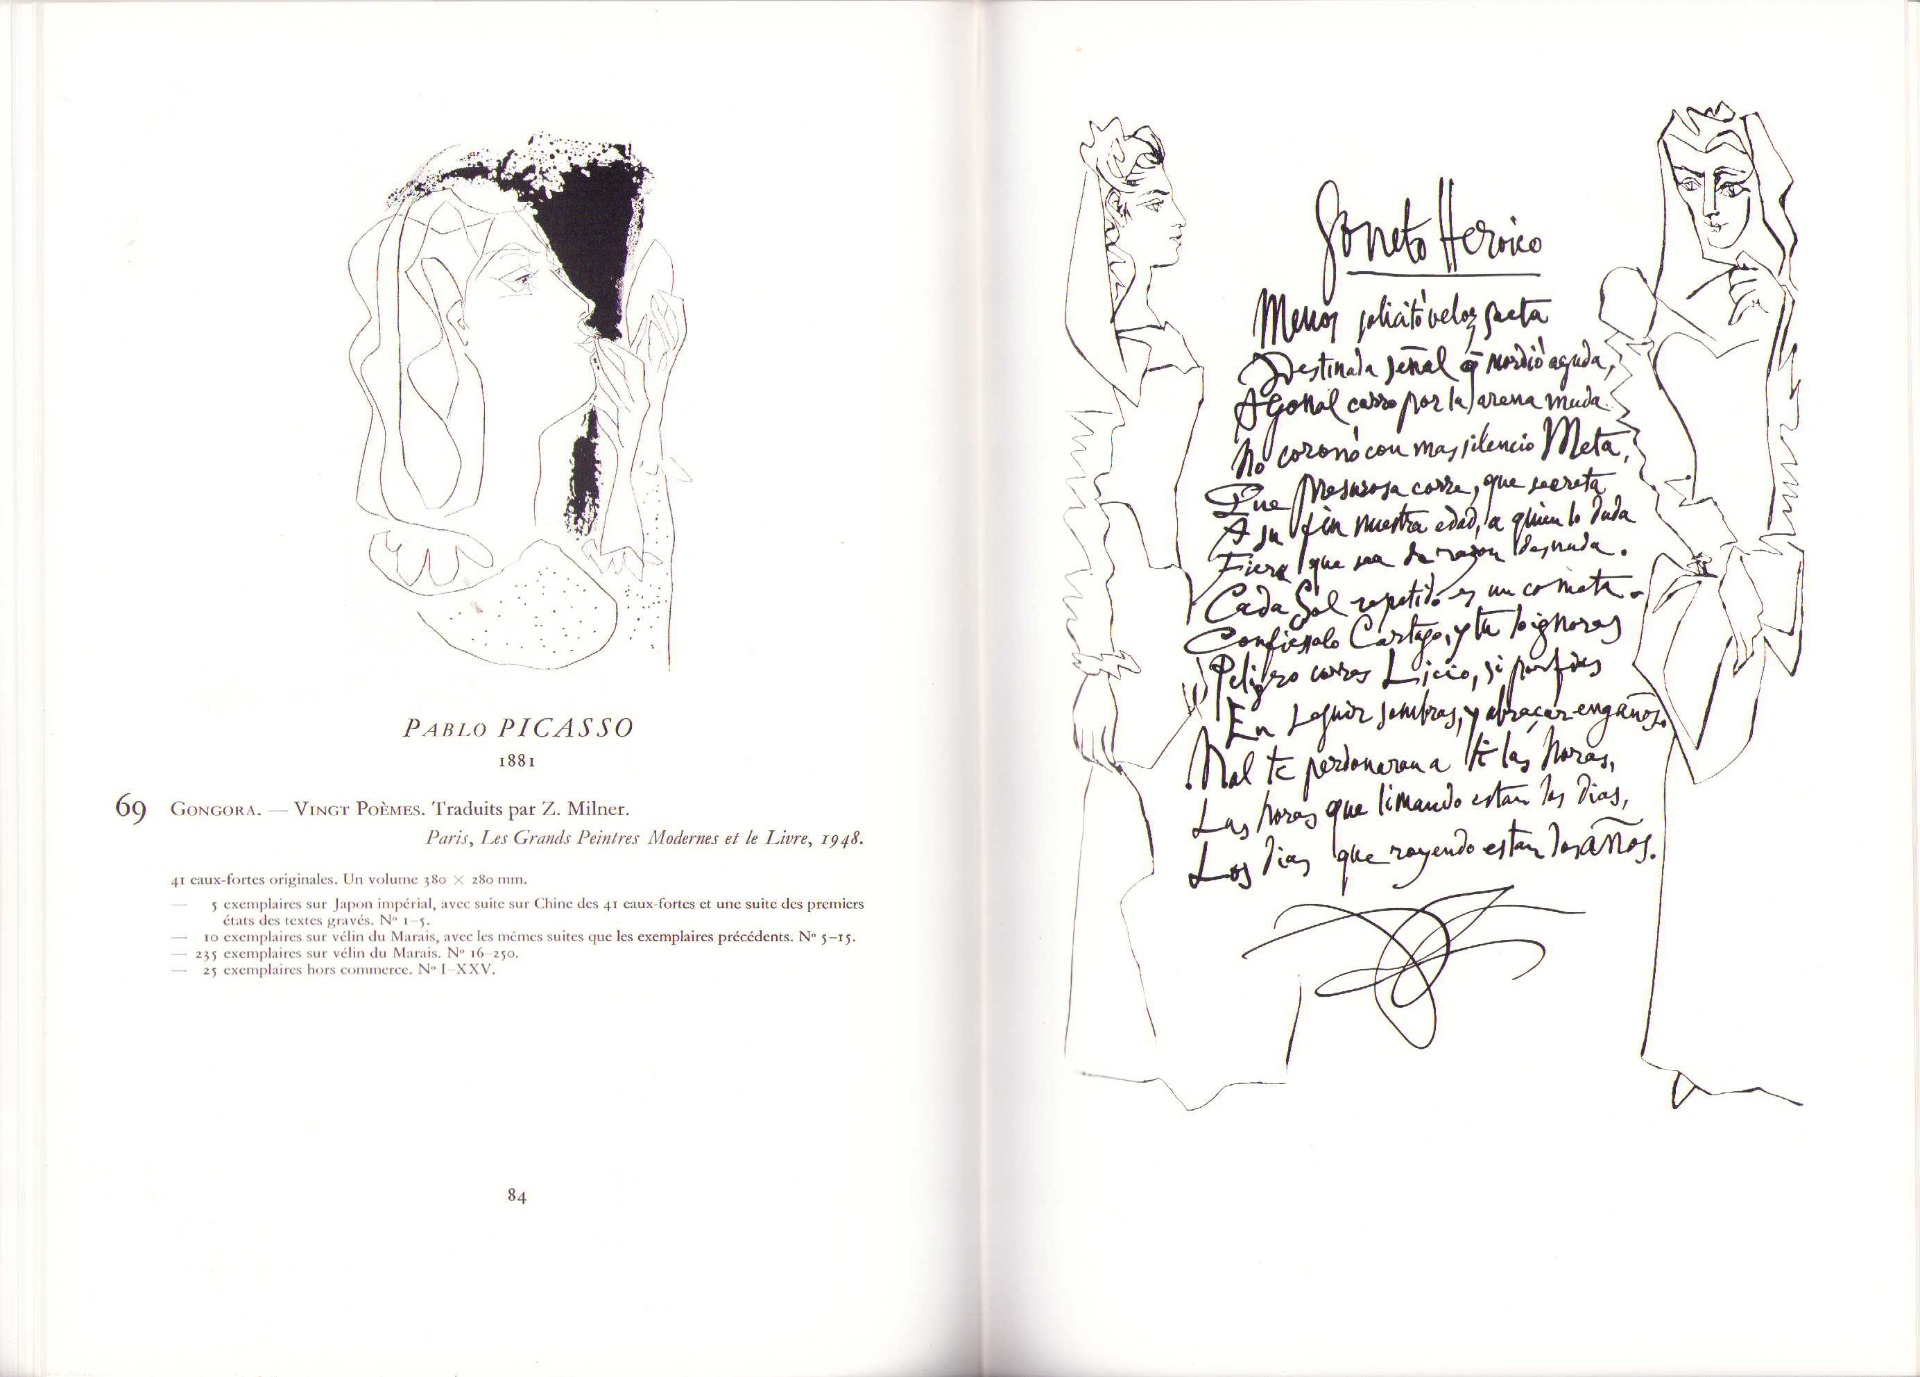 PABLO PICASSO
1881
69 GONGORA. — VINGT POÈMES. Traduits par Z. Milner.
Paris, Les Grands Peintres Modernes et le Livre, 1948.
41 eaux-fortes originales. Un volume 380 × 280 mm.
— 5 exemplaires sur Japon impérial, avec suite sur Chine des 41 eaux-fortes et une suite des premiers
états des textes gravés. Nº 1–5.
— 10 exemplaires sur vélin du Marais, avec les mêmes suites que les exemplaires précédents. Nº 5–15.
— 235 exemplaires sur vélin du Marais. Nº 16–250.
— 25 exemplaires hors commerce. Nº I–XXV.
84
Soneto Heroico
Menos solicitó veloz saeta
Destinada señal q̃ mordió aguda,
Agonal carro por la arena muda
No coronó con mas silencio Meta,
Que presurosa corre, que secreta
A su fin nuestra edad, a quien lo duda
Fiera que sea de razon desnuda.
Cada Sol repetido es un cometa.
Confiesalo Cartago, y tu lo ignoras
Peligro corres Licio, si porfias
En seguir sombras, y abraçar engaños.
Mal te perdonaran a ti las horas,
Las horas que limando estan los dias,
Los dias que royendo estan los años.